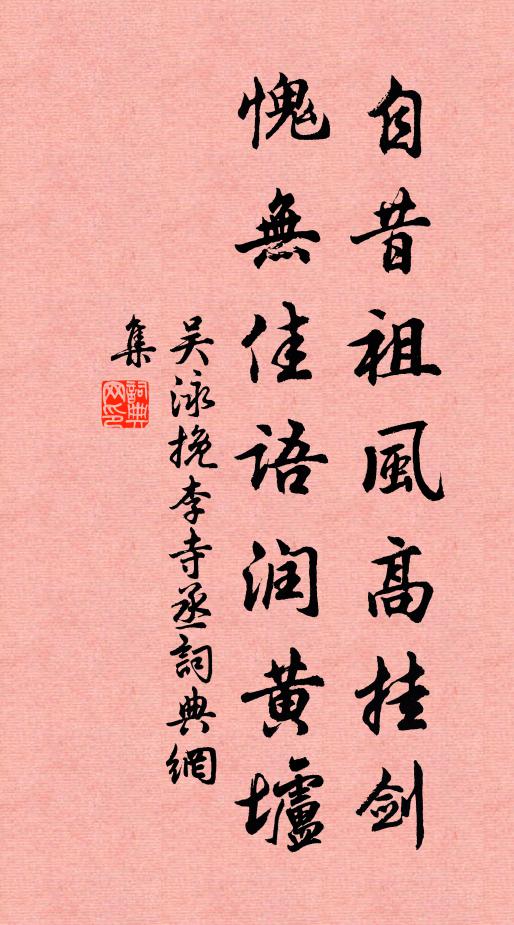 自昔祖風高挂剑
愧無佳語润黄壚
吴泳挽李寺丞詞典網
集
詞典网印